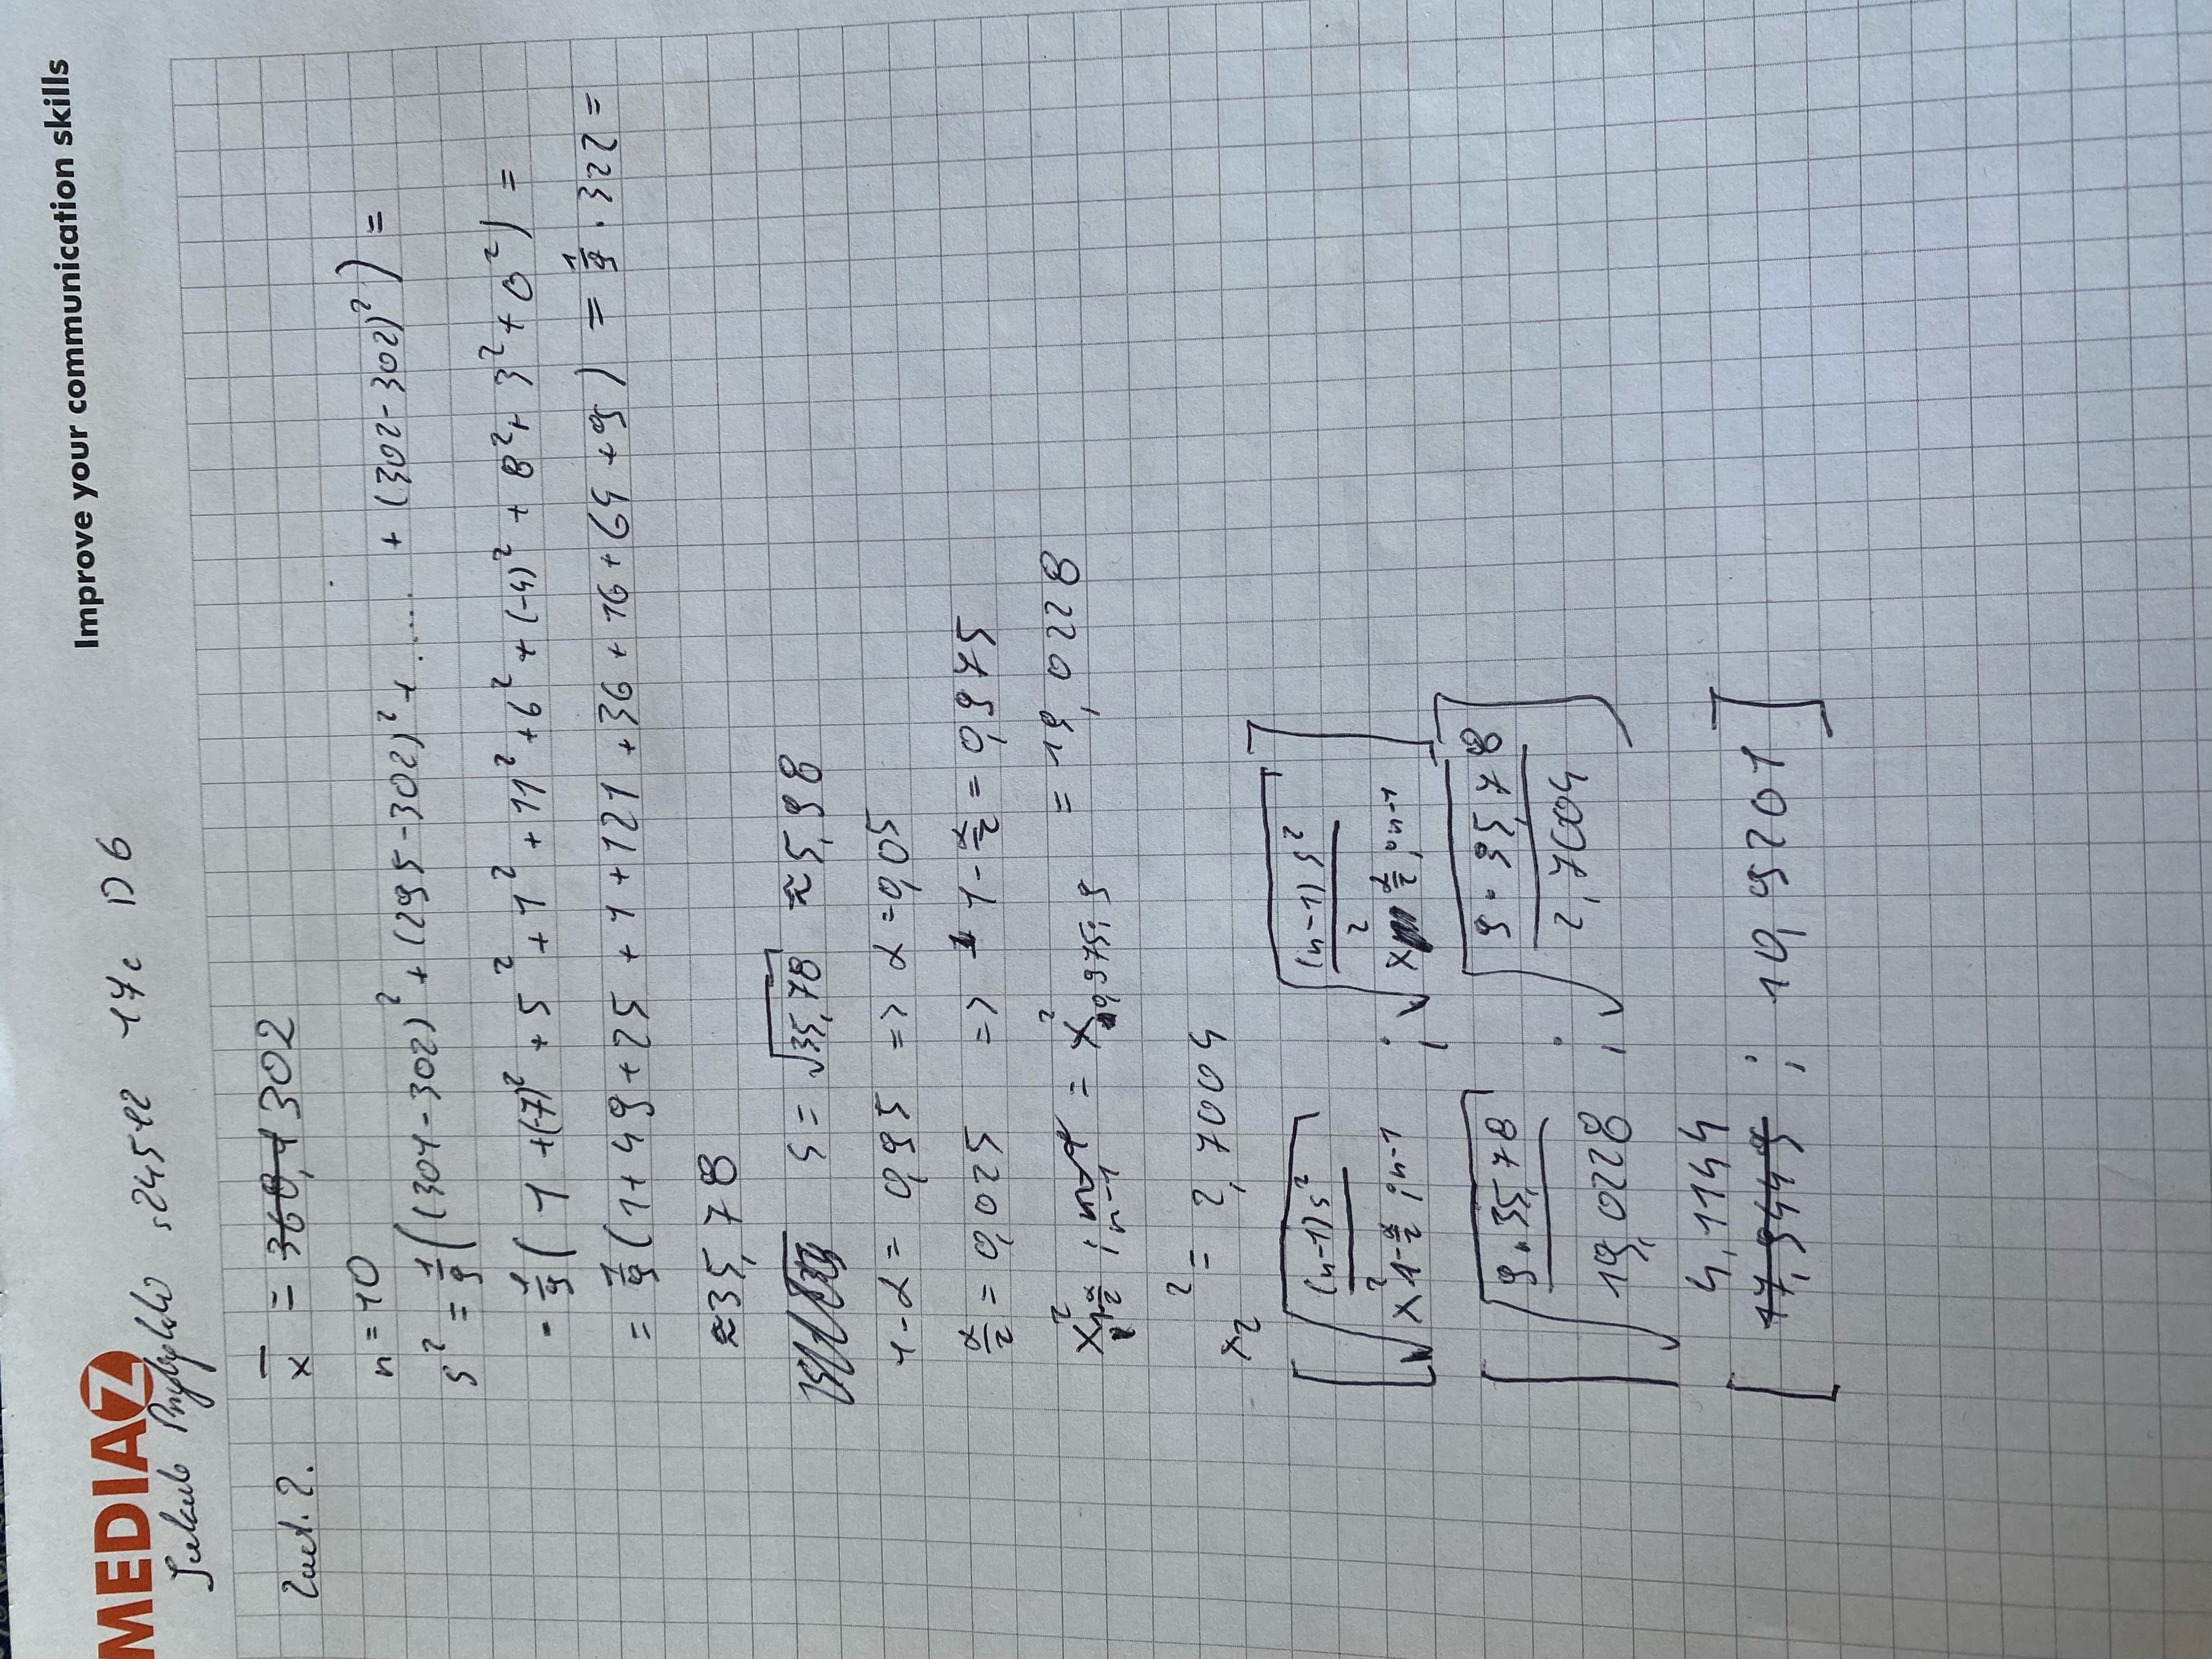 MEDIAZ
Improve your communication skills
s24512 17c D6
Zad. 2. x̄ = 302
n = 10
s² = 1/9 ((301-302)² + (295-302)² + ..... + (302-302)²) =
= 1/9 ( 1 + (-7)² + 5² + 1² + 11² + 6² + (-4)² + 8² + 3² + 0² ) =
= 1/9 (1 + 49 + 25 + 1 + 121 + 36 + 16 + 64 + 9) = 1/9 · 322 =
≈ 35,78
s = √35,78 ≈ 5,98
1-α = 0,95 => α = 0,05
α/2 = 0,025 => 1 - α/2 = 0,975
x²1-α/2 ; n-1 = x²0,975; 9 = 19,0228
x₂² = 2,7004
[ √((n-1)s² / x²1-α/2 ; n-1) ; √((n-1)s² / x²α/2 ; n-1) ]
[ √(9 · 35,78 / 19,0228) ; √(9 · 35,78 / 2,7004) ]
4,1144
[ 17,9449 ; 10,9201 ]